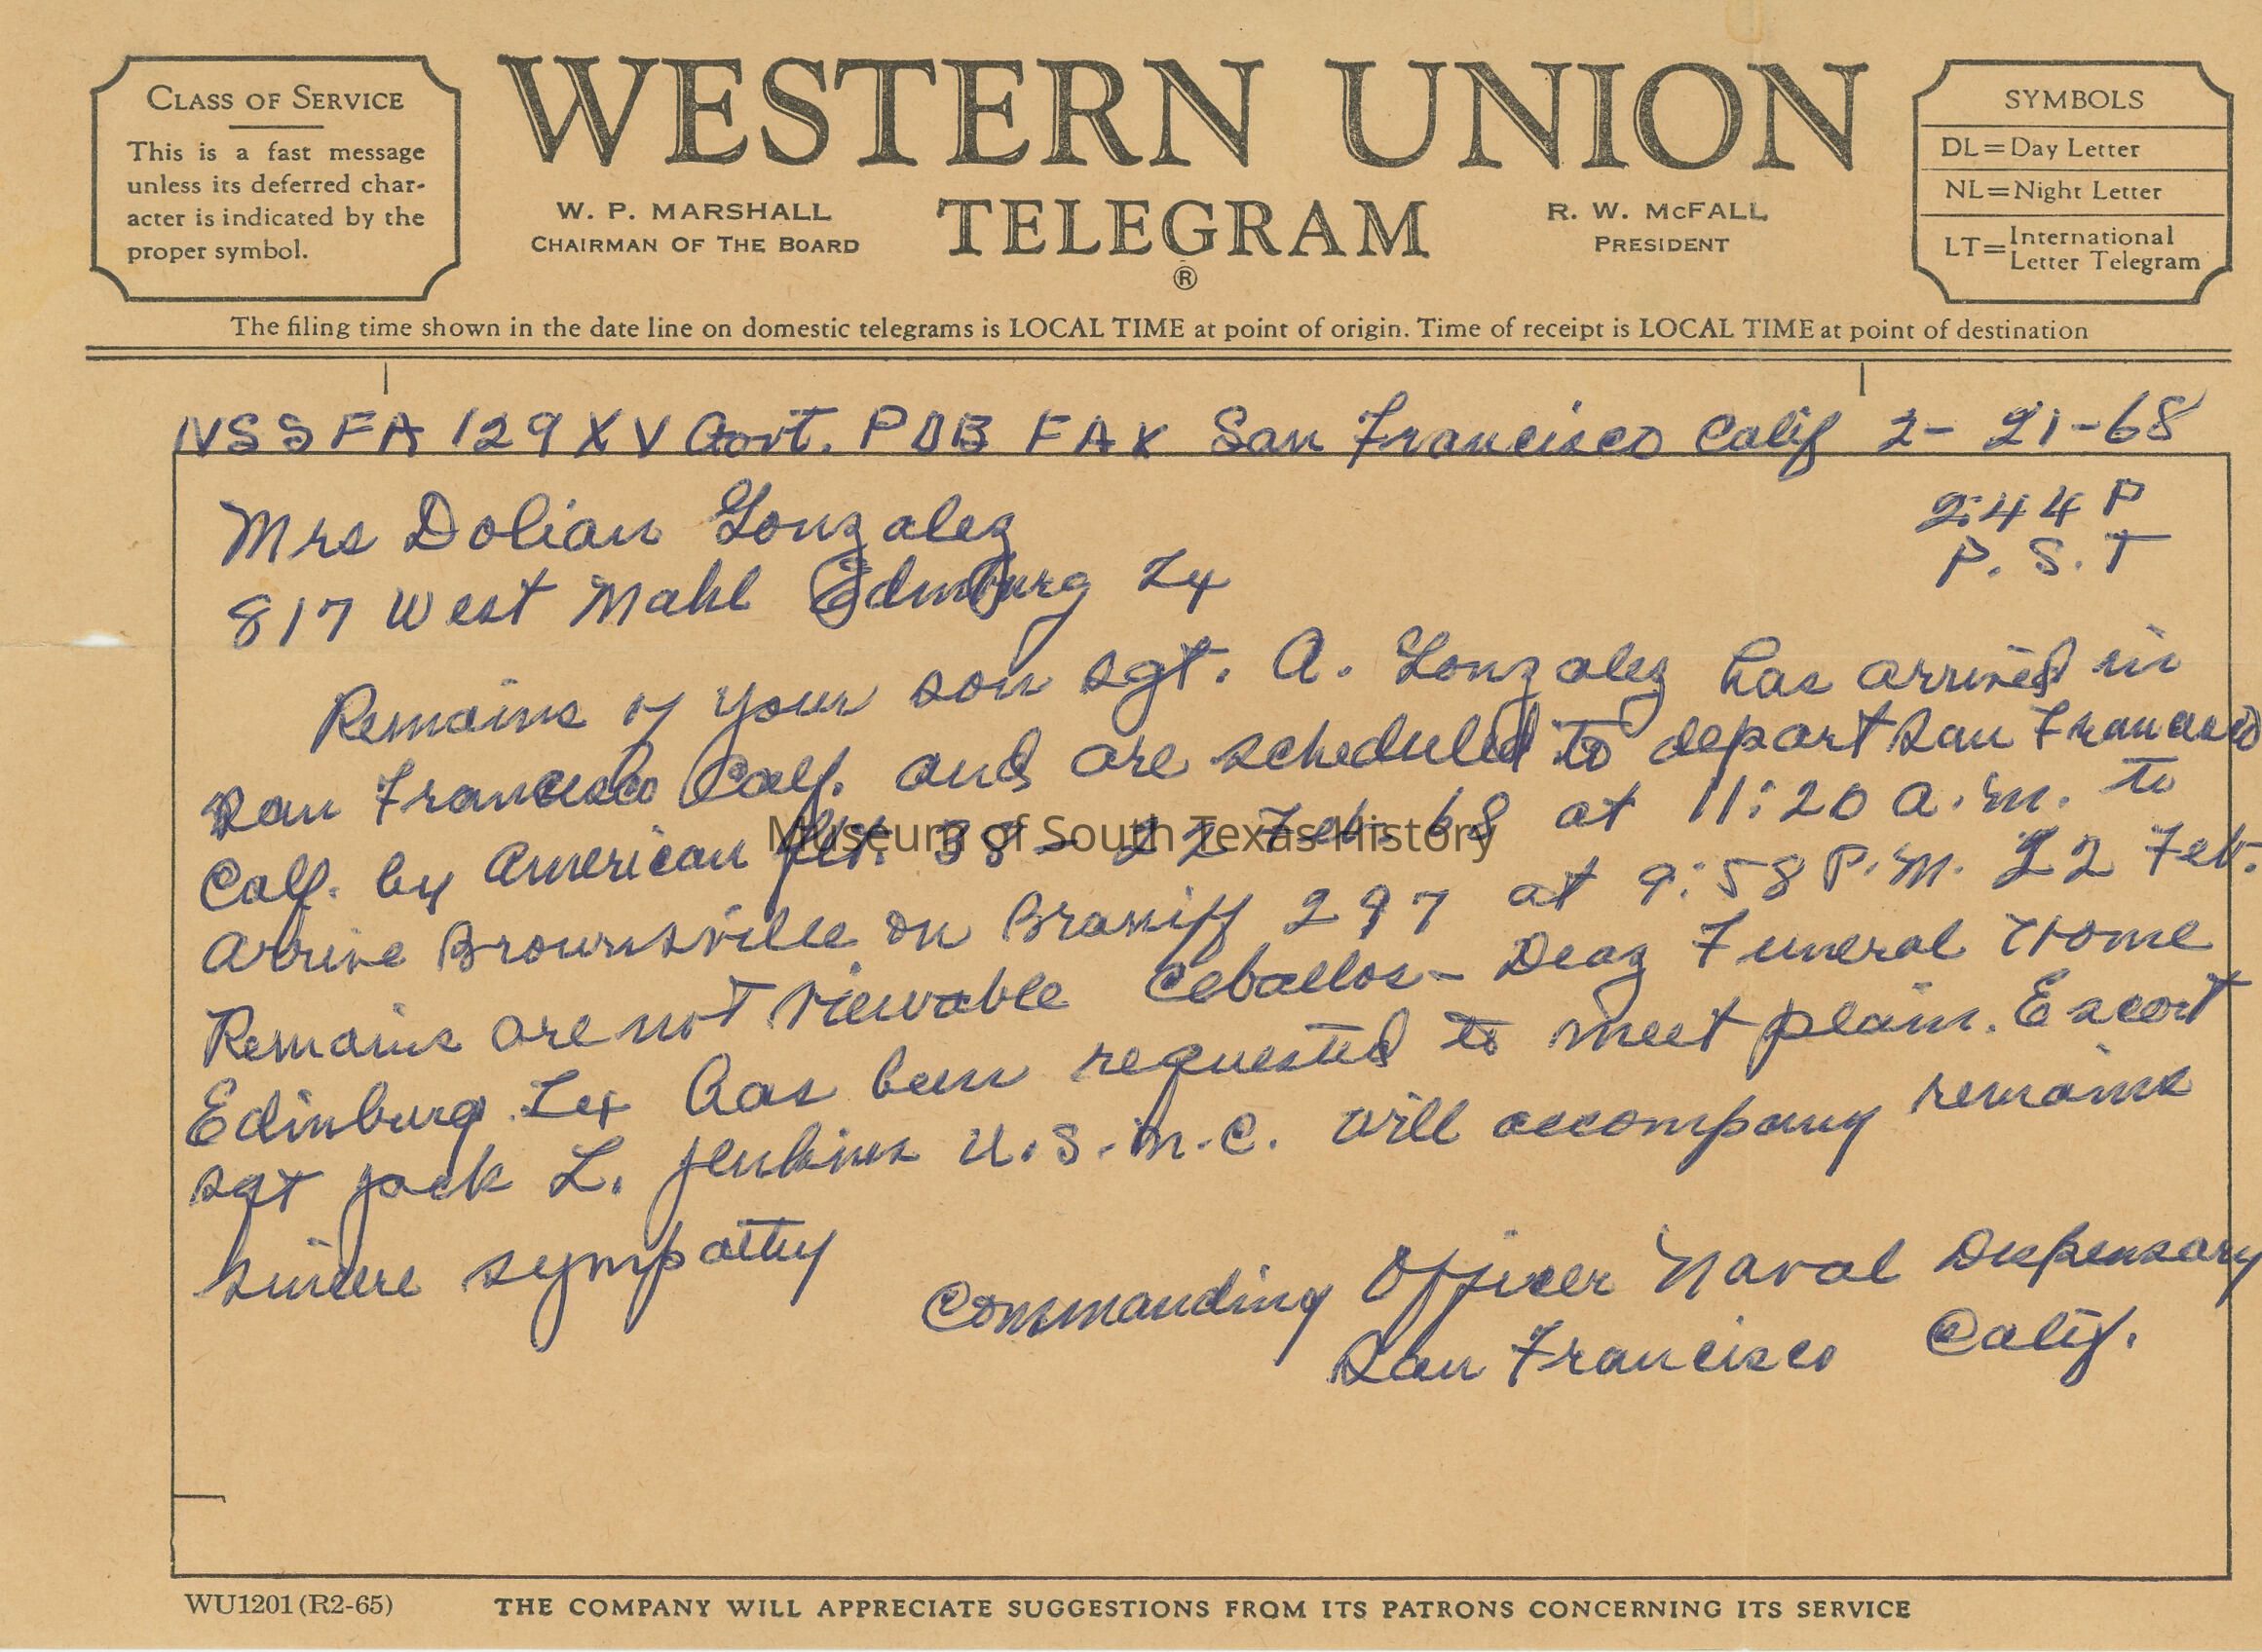 CLASS OF SERVICE
This is a fast message
unless its deferred char-
acter is indicated by the
proper symbol.
WESTERN UNION
TELEGRAM
®
W. P. MARSHALL
CHAIRMAN OF THE BOARD
R. W. McFALL
PRESIDENT
SYMBOLS
DL=Day Letter
NL=Night Letter
LT=International
Letter Telegram
The filing time shown in the date line on domestic telegrams is LOCAL TIME at point of origin. Time of receipt is LOCAL TIME at point of destination
NSSFA 129 XV Govt. PDB FAX San Francisco Calif 2-21-68
2:44 P
P.S.T
Mrs Dolian Gonzalez
817 West Mahl Edinburg Tx
Remains of your son sgt. A. Gonzalez has arrived in
San Francisco Calf. and are scheduled to depart San Francisco
Calf. by American flt. 38 - 22 Feb. 68 at 11:20 a.m. to
arrive Brownsville on Braniff 297 at 9:58 P.M. 22 Feb.
Remains are not viewable Ceballos-Deaz Funeral Home
Edinburg Tex has been requested to meet plain. Escort
sgt Jack L. Jenkins U.S.M.C. will accompany remains
sincere sympathy
Commanding Officer Naval Dispensary
San Francisco Calif.
Museum of South Texas History
WU1201 (R2-65)
THE COMPANY WILL APPRECIATE SUGGESTIONS FROM ITS PATRONS CONCERNING ITS SERVICE